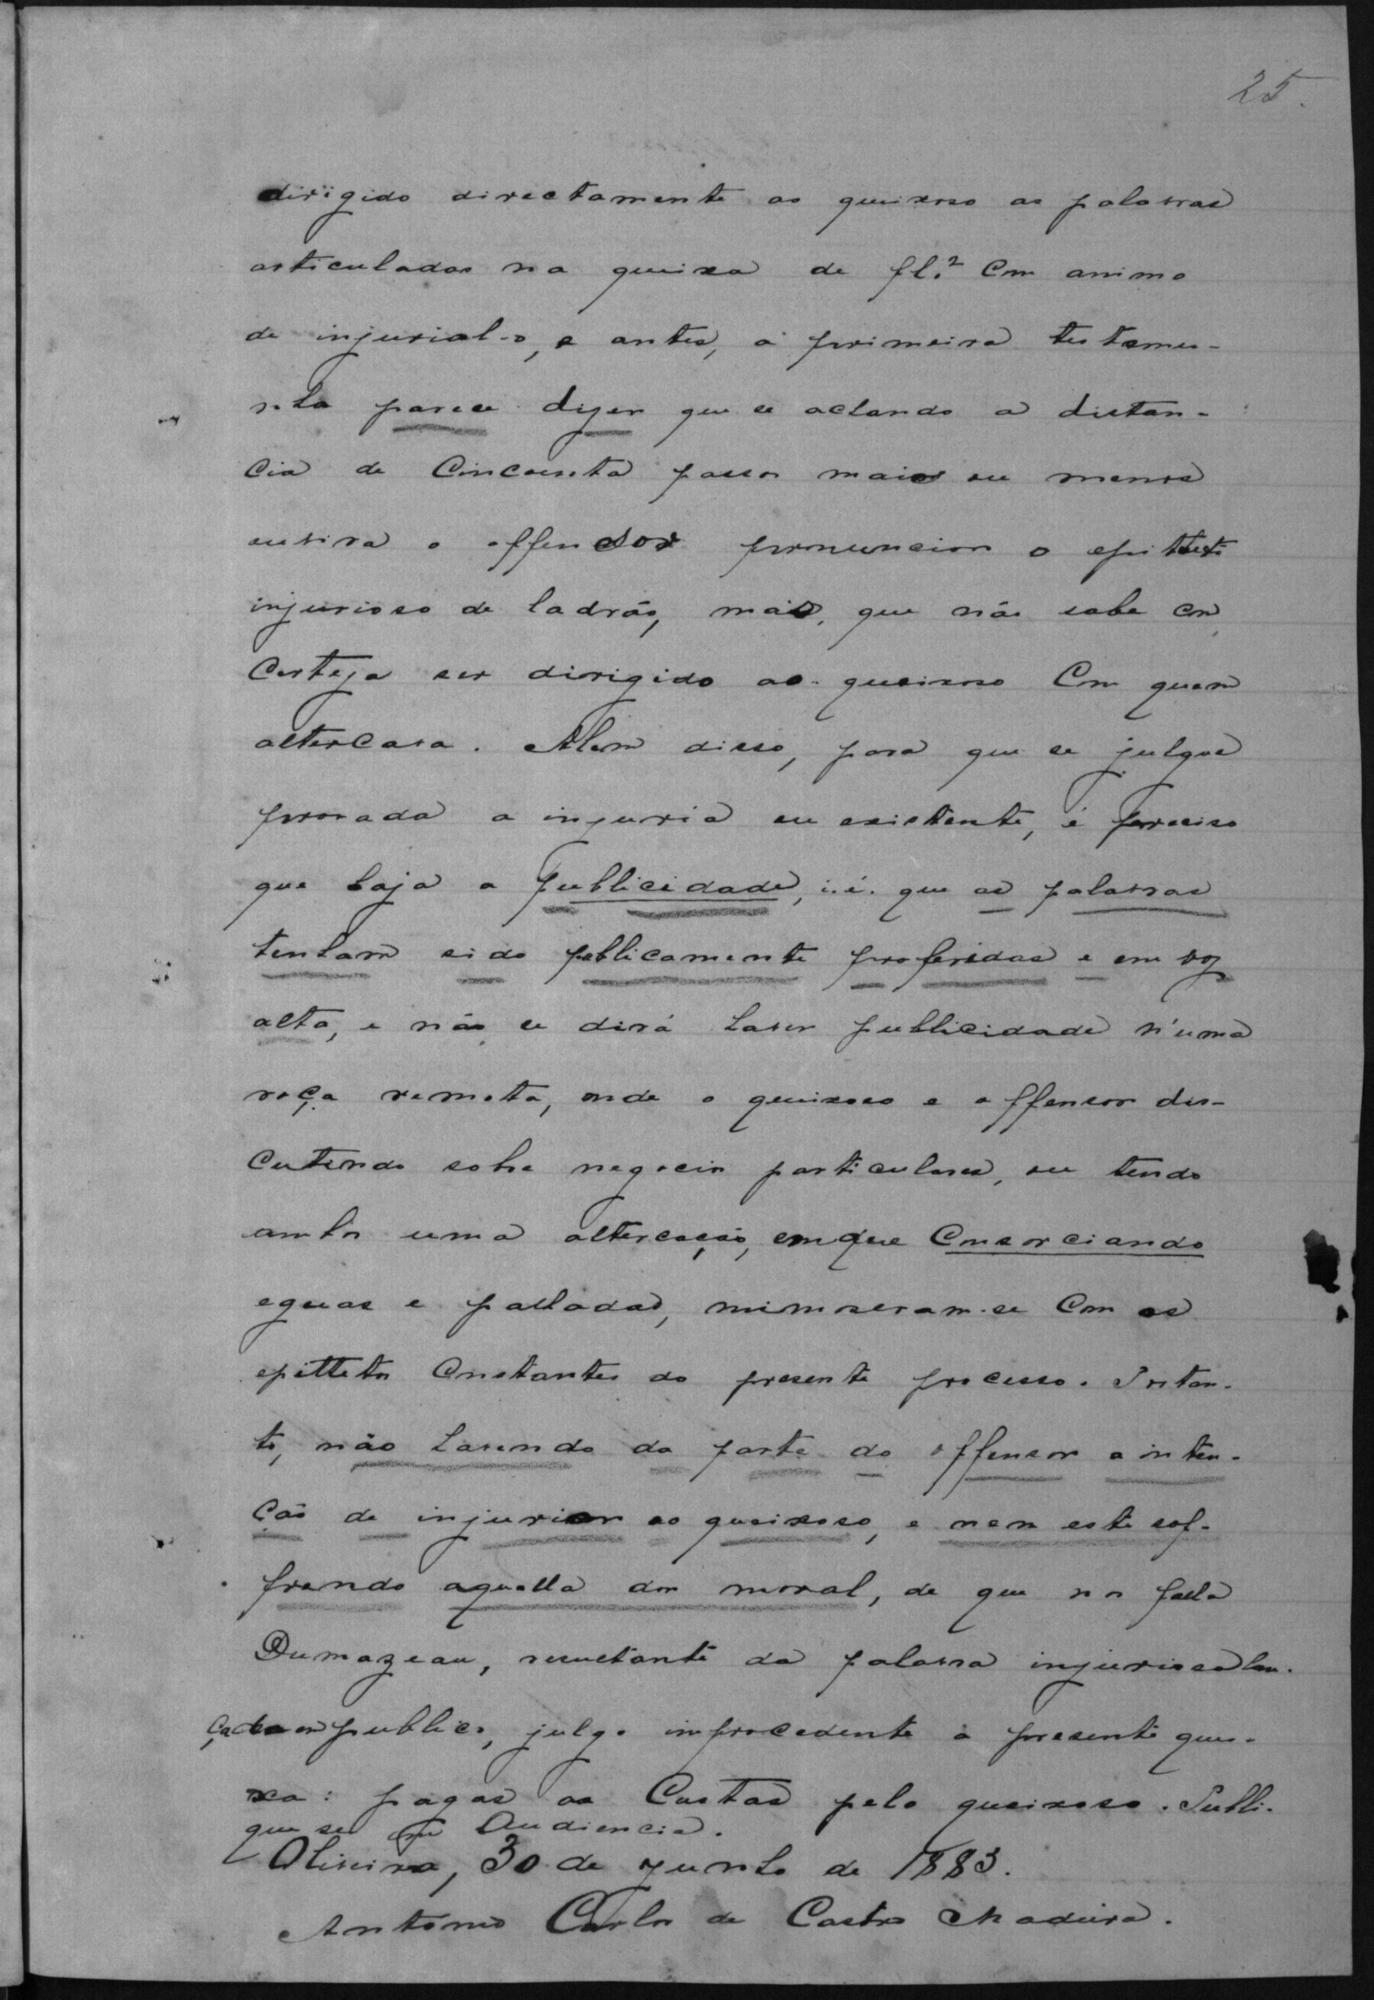 25.
dirigido directamente ao queixoso as palavras
articuladas na queixa de fl. 2 com animo
de injurial-o, e antes, a primeira testemu-
nha parece dizer que se achando a distan-
cia de cincoenta passos mais ou menos
ouvira o offensor pronunciar o epitheto
injurioso de ladrão, mas, que não sabe com
certeza ser dirigido ao queixoso com quem
altercava. Alem disso, para que se julgue
provada a injuria ou existente, é preciso
que haja a publicidade, i. é. que as palavras
tenham sido publicamente proferidas e em voz
alta, e não se dirá haver publicidade n'uma
roça remota, onde o queixoso e o offensor dis-
cutindo sobre negocios particulares, ou tendo
ambos uma altercação, em que consorciando
eguas e palhadas, mimosearam-se com os
epithetos constantes do presente processo. Portan-
to, não havendo da parte do offensor a inten-
ção de injuriar ao queixoso, e nem este sof-
frendo aquella dor moral, de que nos falla
Dumazeau, resultante da palavra injuriosa lan-
çada em publico, julgo improcedente a presente quei-
xa: pagas as custas pelo queixoso. Publi-
que se em Audiencia.
Oliveira, 30 de Junho de 1883.
Antonio Carlos de Castro Madeira.